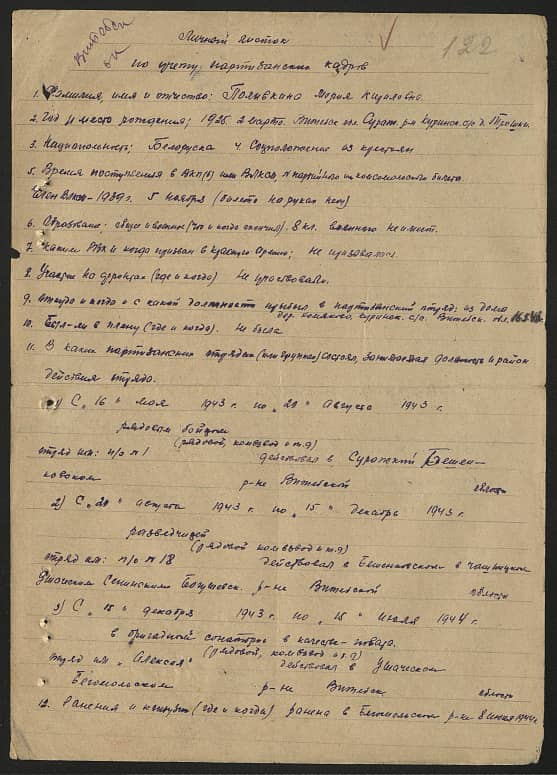 122
Личный листок
по учету партизанских кадров
1. Фамилия, имя и отчество: Полывкина Мария Кириловна.
2. Год и место рождения; 1925 2 марта. Витебск обл. Сураж. р-н Куринск. с/с д. Трошки.
3. Национальность; Белоруска 4 Соцположение из крестьян
5. Время поступления в ВКП(б) или ВЛКСМ, N партийного или комсомольского билета.
Член ВЛКСМ - 1939 г. 5 ноября (билета на руках нет)
6. Образование: общее и военное (что и когда окончил). 8 кл. военного не имеет.
7. Каким РВК и когда призван в Красную Армию; Не призывалась
8. Участие на фронтах (где и когда) Не участвовала.
9. откуда и когда и с какой должности прибыл в партизанский отряд: из дома
дер. Куринск. с/с. Витебск. обл. 16.5.43.
10. Был-ли в плену (где и когда). Не была
11. В каких партизанских отрядах (или группах) состоял, занимаемая должность и район
действия отряда.
1) С "16" мая 1943 г. по "20" Августа 1943 г.
рядовым бойцом
(рядовой, комвзвод и т.д)
отряд им: п/о N 1 действовал в Суражский Бешен-
ковском р-не Витебской области
2) С "20" августа 1943 г по "15" декабрь 1943 г.
разведчицей
(рядовой комвзвод и т.д)
отряд им: п/о N 18 действовал в Бешенковском в чашницком
Ушачском Сенинским р-не Витебской области
3) С "15" декабря 1943 г. по "15" июля 1944 г.
в бригадный санаторе в качестве - повара.
(рядовой, комвзвод и т.д)
отряд им "Алексея" действовал в Ушачском
Бегомольском р-не Витебск область
12. Ранения и контузии (где и когда) ранена в Бегомольском р-не 8 июня 1944 г.